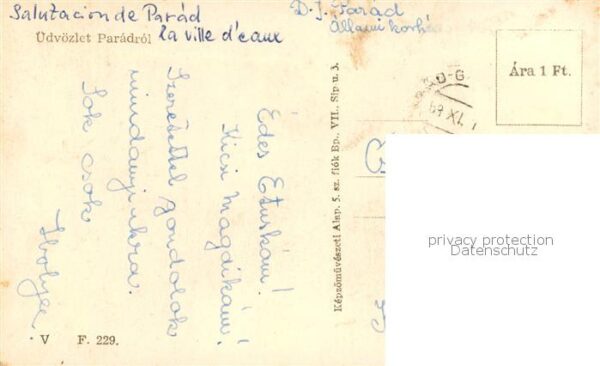 Salutacion de Parád
Üdvözlet Parádról la ville d'eaux
D. I. Parád
Állami kórh
Ára 1 Ft.
Édes Etuskám!
Kicsi Magdikám!
Szeretettel gondolok
mindanyiukra.
Sok csók
Ibolyee
Képzőművészeti Alap. 5. sz. fiók Bp., VII., Sip u. 3.
privacy protection
Datenschutz
V F. 229.